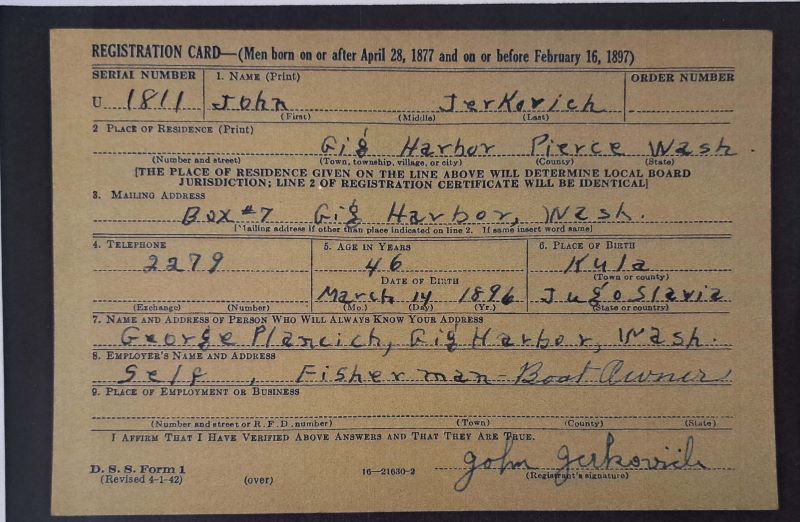 REGISTRATION CARD—(Men born on or after April 28, 1877 and on or before February 16, 1897)
SERIAL NUMBER 1. NAME (Print) ORDER NUMBER
U 1811 John Jerkovich
(First) (Middle) (Last)
2 PLACE OF RESIDENCE (Print)
Gig Harbor Pierce Wash.
(Number and street) (Town, township, village, or city) (County) (State)
[THE PLACE OF RESIDENCE GIVEN ON THE LINE ABOVE WILL DETERMINE LOCAL BOARD
JURISDICTION; LINE 2 OF REGISTRATION CERTIFICATE WILL BE IDENTICAL]
3. MAILING ADDRESS
Box #7 Gig Harbor, Wash.
[Mailing address if other than place indicated on line 2. If same insert word same]
4. TELEPHONE 5. AGE IN YEARS 6. PLACE OF BIRTH
2279 46 Kula
DATE OF BIRTH (Town or county)
March 14 1896 Jugoslavia
(Exchange) (Number) (Mo.) (Day) (Yr.) (State or country)
7. NAME AND ADDRESS OF PERSON WHO WILL ALWAYS KNOW YOUR ADDRESS
George Plancich, Gig Harbor, Wash.
8. EMPLOYER'S NAME AND ADDRESS
Self, Fisherman - Boat Owner
9. PLACE OF EMPLOYMENT OR BUSINESS
(Number and street or R. F. D. number) (Town) (County) (State)
I AFFIRM THAT I HAVE VERIFIED ABOVE ANSWERS AND THAT THEY ARE TRUE.
John Jerkovich
D. S. S. Form 1 16—21630-2 (Registrant's signature)
(Revised 4-1-42) (over)